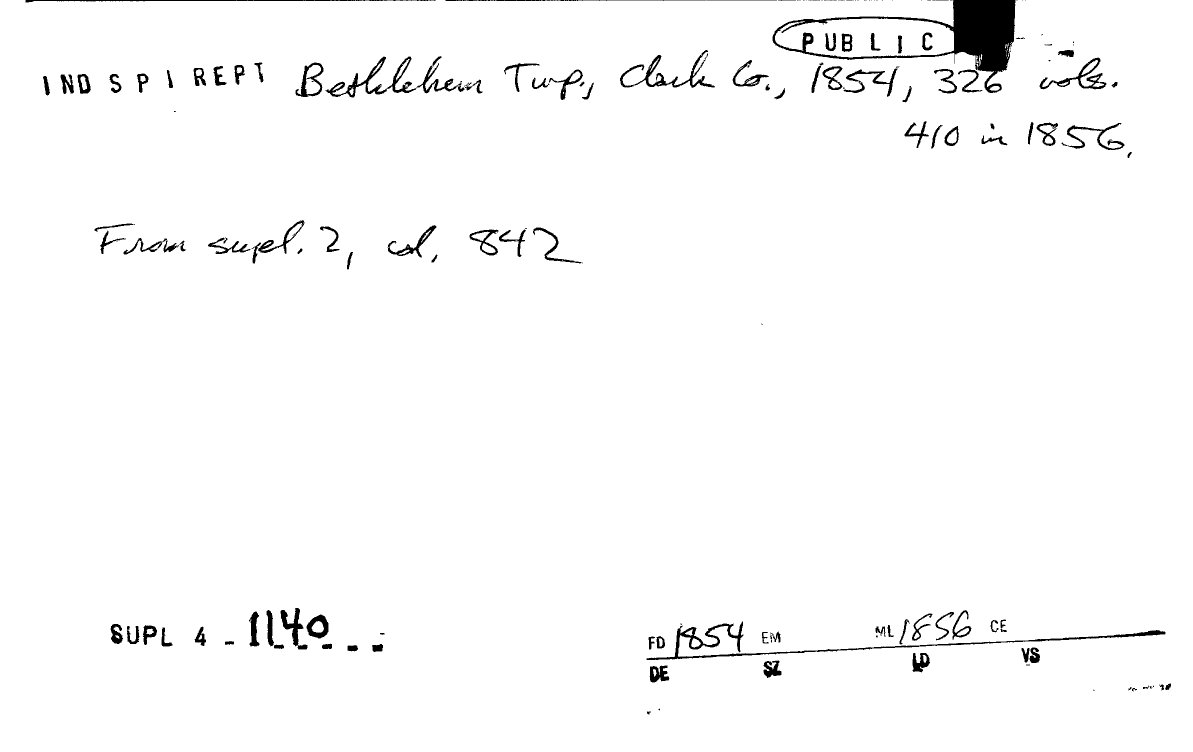 PUBLIC
INDSPIREPT Bethlehem Twp., Clark Co., 1854, 326 vols.
410 in 1856.
From supl. 2, col. 842
SUPL 4 - 1140
FD 1854 EM ML 1856 CE
DE SZ LD VS